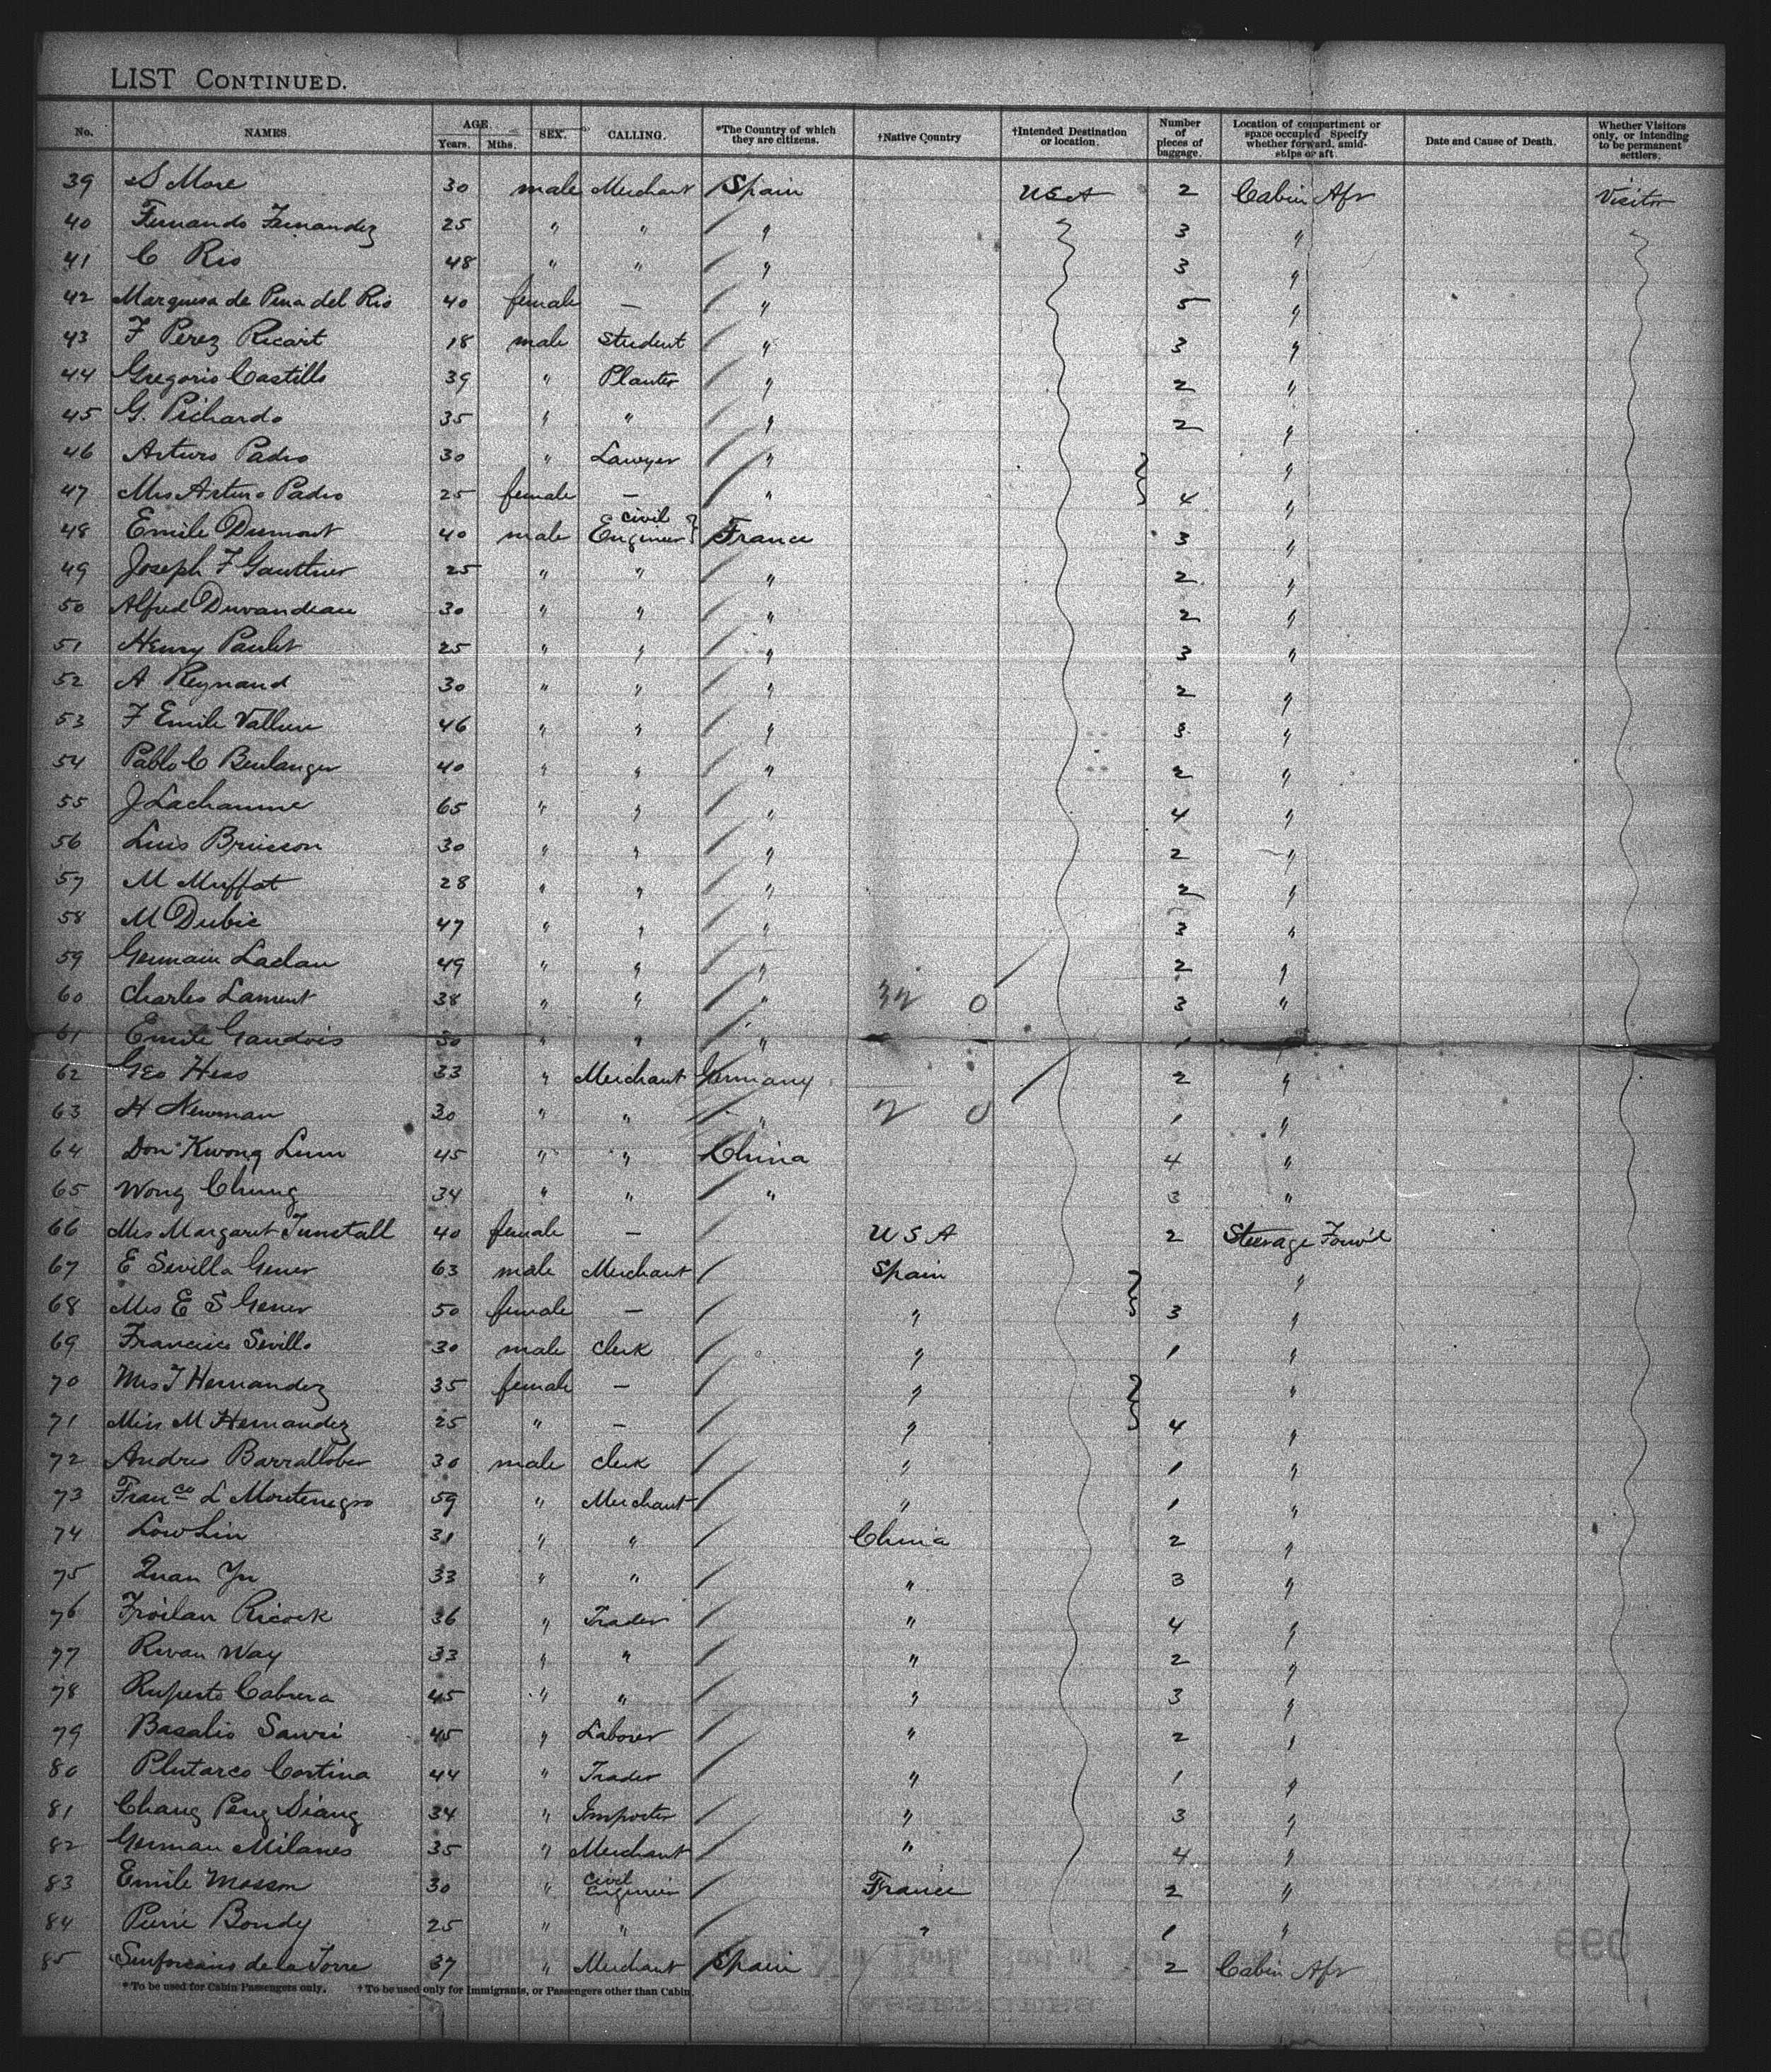 LIST CONTINUED.
No. NAMES. AGE. Years. Mths. SEX. CALLING. *The Country of which they are citizens. †Native Country †Intended Destination or location. Number of pieces of baggage. Location of compartment or space occupied. Specify whether forward, amidships or aft. Date and Cause of Death. Whether Visitors only, or intending to be permanent settlers.
39 S More 30 male Merchant Spain USA 2 Cabin Aft Visitor
40 Fernando Fernandez 25 " " " 3 "
41 C Rio 48 " " " 3 "
42 Marquesa de Pena del Rio 40 female — " 5 "
43 F Perez Ricart 18 male Student " 3 "
44 Gregorio Castillo 39 " Planter " 2 "
45 G. Pichardo 35 " " " 2 "
46 Arturo Padro 30 " Lawyer " "
47 Mrs Arturo Padro 25 female — " 4 "
48 Emile Dumont 40 male Civil Engineer France 3 "
49 Joseph F Gauthier 25 " " " 2 "
50 Alfred 30 " " " 2 "
51 Henry Paulet 25 " " " 3 "
52 A Reynaud 30 " " " 2 "
53 F Emile 46 " " " 3 "
54 Pablo C Beulanger 40 " " " 2 "
55 J Lachaume 65 " " " 4 "
56 Luis Bruisson 30 " " " 2 "
57 M Muffat 28 " " " 2 "
58 M Dubie 47 " " " 3 "
59 Germain Laclau 49 " " " 2 "
60 Charles Lament 38 " " " 32 0 3 "
61 Emile Gaudois 30 " " " 1
62 Geo Hess 33 " Merchant Germany 2 "
63 H Newman 30 " " " 2 0 1 "
64 Don Kwong Lum 45 " " China 4 "
65 Wong Chung 34 " " " 3 "
66 Mrs Margaret Tunstall 40 female — USA 2 Steerage Forw'd
67 E Sevilla Gener 63 male Merchant Spain "
68 Mrs E S Gener 50 female — " 3 "
69 Francisco Sevilla 30 male Clerk " 1 "
70 Mrs T Hernandez 35 female — " "
71 Miss M Hernandez 25 " — " 4 "
72 Andres Barrallober 30 male Clerk " 1 "
73 Franco L Montenegro 59 " Merchant " 1 "
74 Low Lin 31 " " China 2 "
75 Quan Yu 33 " " " 3 "
76 Froilan Ricock 36 " Trader " 4 "
77 Rwan Way 33 " " " 2 "
78 Ruperto Cabrera 45 " " " 3 "
79 Basalio Sauri 45 " Laborer " 2 "
80 Plutarco Cortina 44 " Trader " 1 "
81 Chang Peng Siang 34 " Importer " 3 "
82 German Milanes 35 " Merchant " 4 "
83 Emile Masson 30 " Civil Engineer France 2 "
84 Pierre Bondy 25 " " " 1 "
85 Sinforiano de la Torre 37 " Merchant Spain 2 Cabin Aft
*To be used for Cabin Passengers only. †To be used only for Immigrants, or Passengers other than Cabin.